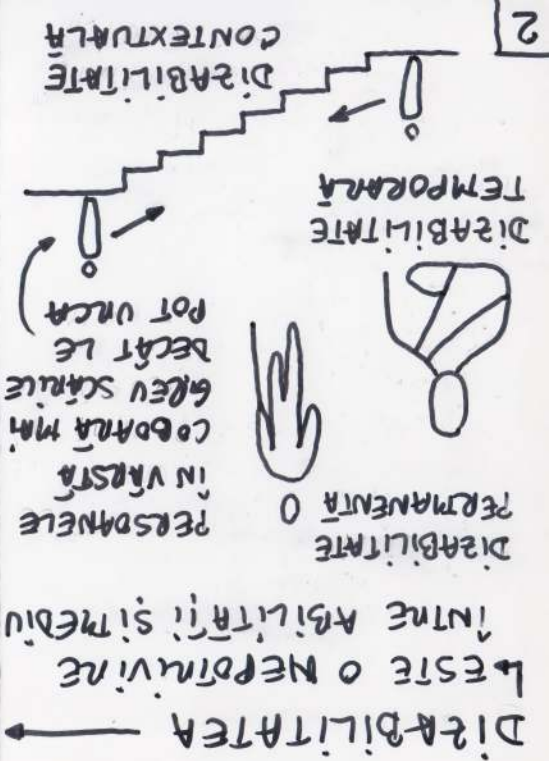 DIZABILITATEA
ESTE O NEPOTRIVIRE
ÎNTRE ABILITĂȚI ȘI MEDIU
DIZABILITATE
PERMANENTĂ
PERSOANELE
ÎN VÂRSTĂ
COBOARĂ MAI
GREU SCĂRILE
DECÂT LE
POT URCA
DIZABILITATE
TEMPORARĂ
DIZABILITATE
CONTEXTUALĂ
2